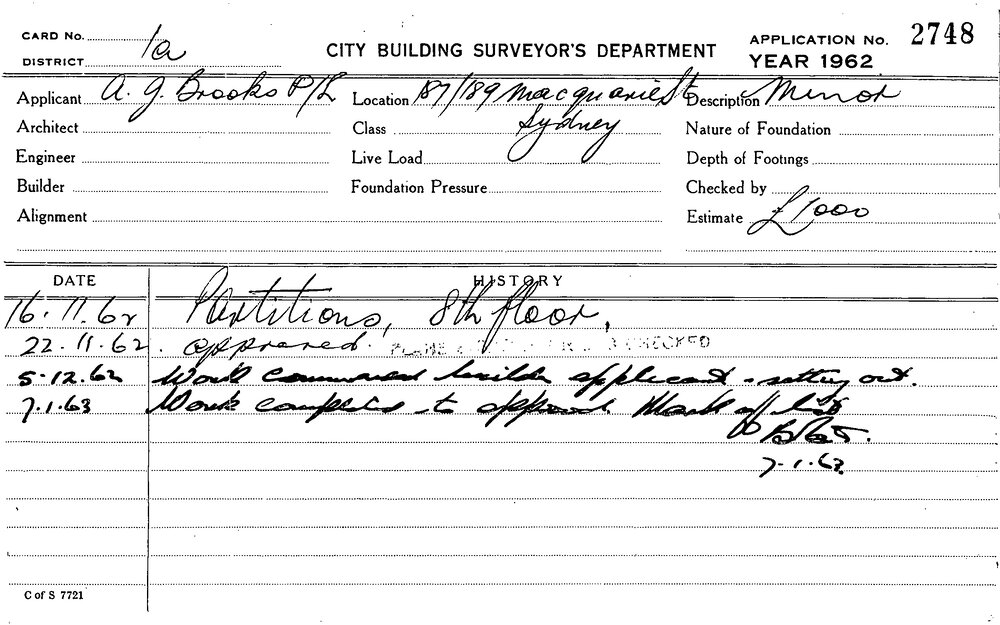 CARD No. 1a
CITY BUILDING SURVEYOR'S DEPARTMENT
APPLICATION No. 2748
DISTRICT
YEAR 1962
Applicant A. G. Brooks P/L Location 187/189 Macquarie St Description Minor
Architect Class Sydney Nature of Foundation
Engineer Live Load Depth of Footings
Builder Foundation Pressure Checked by
Alignment Estimate £1000
DATE HISTORY
16.11.62 Partitions, 8th floor,
22.11.62. approved. PLANS CHECKED
5.12.62 Work commenced builder applicant - setting out.
7.1.63 Work completed to approval Mark off list
7.1.63
C of S 7721